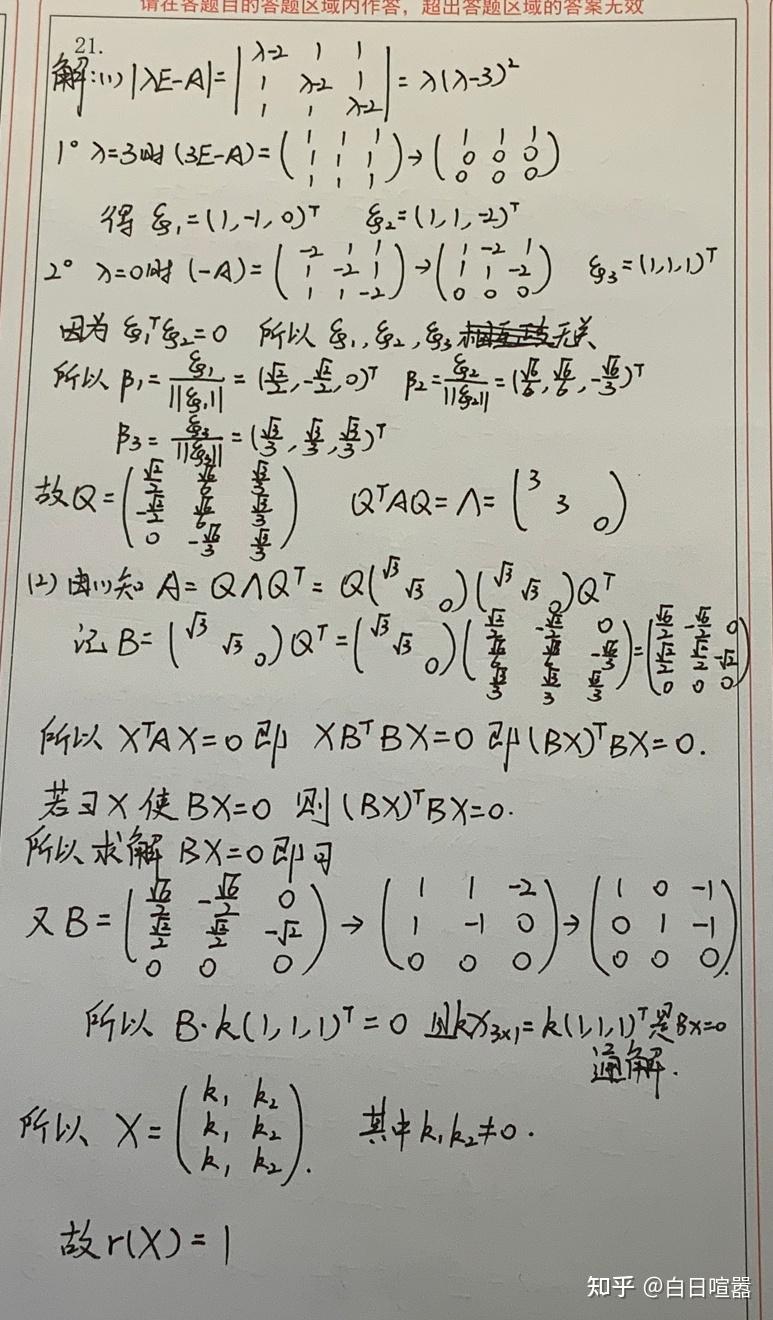 请在各题目的答题区域内作答，超出答题区域的答案无效
21.
解:(1) |λE-A| = | λ-2 1 1 ; 1 λ-2 1 ; 1 1 λ-2 | = λ(λ-3)²
1° λ=3时 (3E-A) = ( 1 1 1 ; 1 1 1 ; 1 1 1 ) → ( 1 1 1 ; 0 0 0 ; 0 0 0 )
得 ξ₁=(1,-1,0)ᵀ ξ₂=(1,1,-2)ᵀ
2° λ=0时 (-A) = ( -2 1 1 ; 1 -2 1 ; 1 1 -2 ) → ( 1 -2 1 ; 1 1 -2 ; 0 0 0 ) ξ₃=(1,1,1)ᵀ
因为 ξ₁ᵀξ₂=0 所以 ξ₁,ξ₂,ξ₃ 无关
所以 β₁ = ξ₁/||ξ₁|| = (√2/2, -√2/2, 0)ᵀ β₂ = ξ₂/||ξ₂|| = (√6/6, √6/6, -√6/3)ᵀ
β₃ = ξ₃/||ξ₃|| = (√3/3, √3/3, √3/3)ᵀ
故 Q = ( √2/2 √6/6 √3/3 ; -√2/2 √6/6 √3/3 ; 0 -√6/3 √3/3 ) QᵀAQ = Λ = ( 3 3 0 )
(2) 由(1)知 A = QΛQᵀ = Q( √3 √3 0 )( √3 √3 0 )Qᵀ
记 B = ( √3 √3 0 )Qᵀ = ( √3 √3 0 )( √2/2 -√2/2 0 ; √6/6 √6/6 -√6/3 ; √3/3 √3/3 √3/3 ) = ( √6/2 -√6/2 0 ; √2/2 √2/2 -√2 ; 0 0 0 )
所以 XᵀAX=0 即 XBᵀBX=0 即 (BX)ᵀBX=0.
若∃X 使 BX=0 则 (BX)ᵀBX=0.
所以求解 BX=0 即可
又 B = ( √6/2 -√6/2 0 ; √2/2 √2/2 -√2 ; 0 0 0 ) → ( 1 1 -2 ; 1 -1 0 ; 0 0 0 ) → ( 1 0 -1 ; 0 1 -1 ; 0 0 0 ).
所以 B·k(1,1,1)ᵀ=0 则kX₃ₓ₁=k(1,1,1)ᵀ是Bx=0
通解.
所以 X = ( k₁ k₂ ; k₁ k₂ ; k₁ k₂ ). 其中 k₁k₂≠0.
故 r(X)=1
知乎 @白日喧嚣